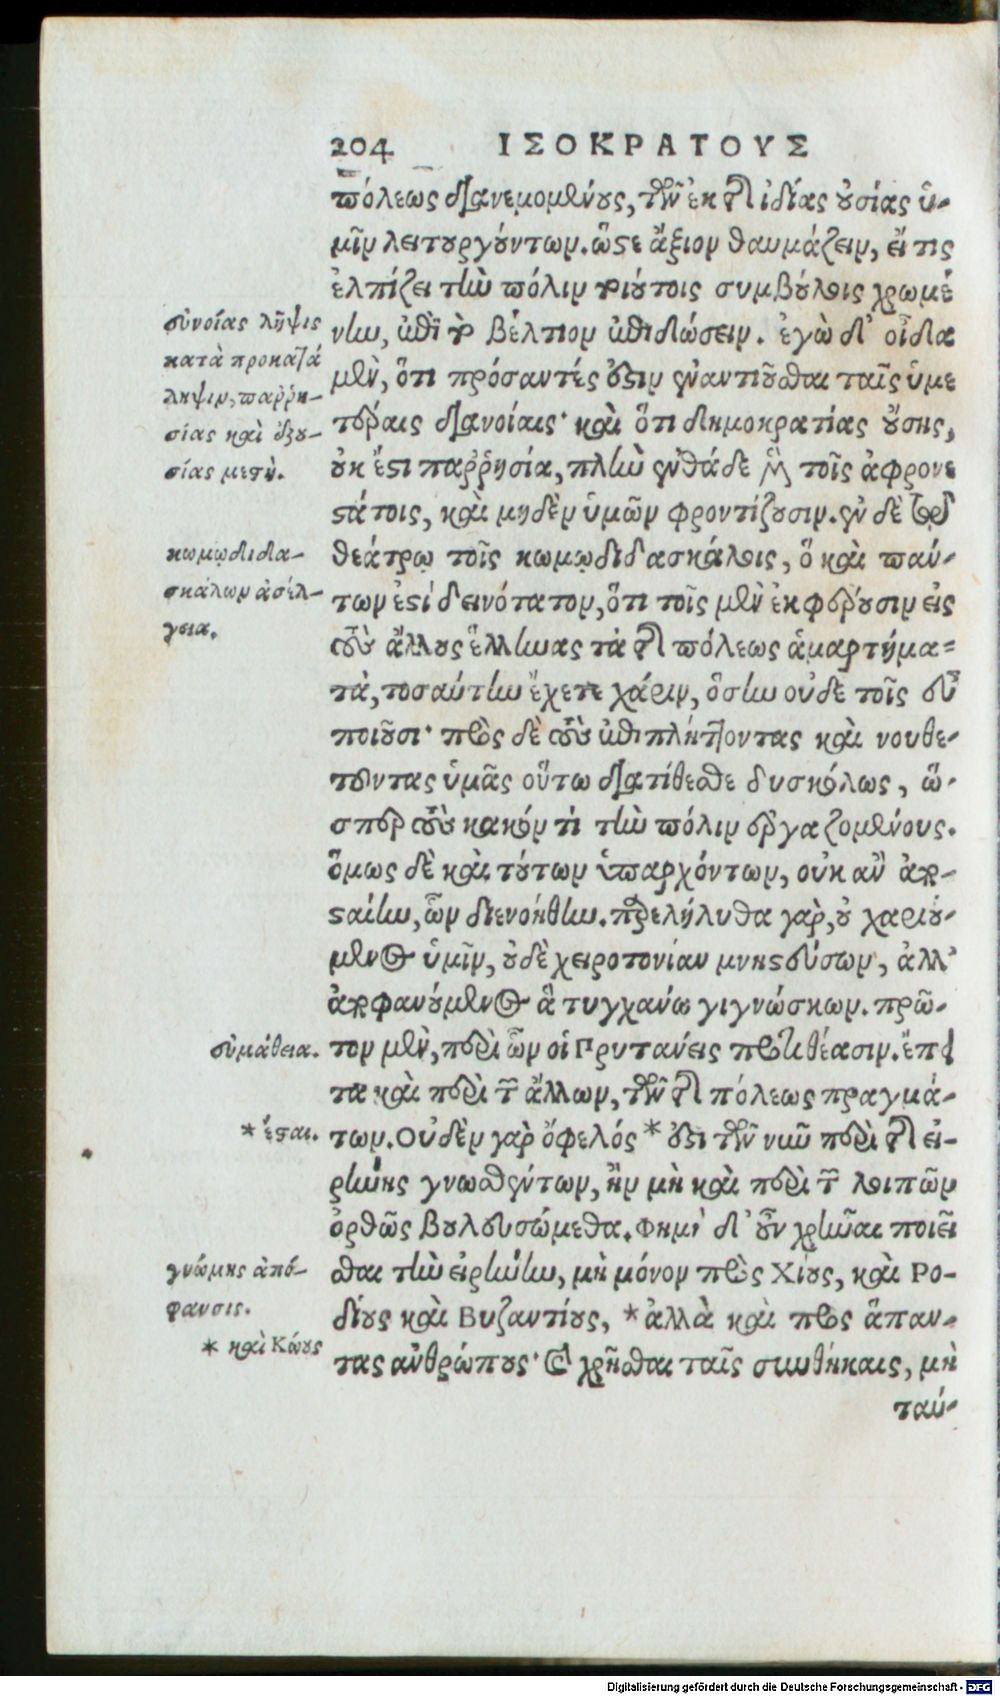 204 ΙΣΟΚΡΑΤΟΥΣ
πόλεως διανεμομένους, τῶν ἐκ τῆς ἰδίας οὐσίας ὑ-
μῖν λειτουργούντων. ὥστε ἄξιον θαυμάζειν, εἴ τις
ἐλπίζει τὴν πόλιν τοιούτοις συμβούλοις χρωμέ
νην, ἐπὶ τὸ βέλτιον ἐπιδώσειν. ἐγὼ δ' οἶδα
μὲν, ὅτι πρόσαντές ἐστιν ἐναντιοῦσθαι ταῖς ὑμε
τέραις διανοίαις· καὶ ὅτι δημοκρατίας οὔσης,
οὐκ ἔστι παῤῥησία, πλὴν ἐνθάδε μὲν τοῖς ἀφρονε
στάτοις, καὶ μηδὲν ὑμῶν φροντίζουσιν. ἐν δὲ τῷ
θεάτρῳ τοῖς κωμῳδιδασκάλοις, ὃ καὶ πάν-
των ἐστί δεινότατον, ὅτι τοῖς μὲν ἐκφέρουσιν εἰς
τοὺς ἄλλους ἕλληνας τὰ τῆς πόλεως ἁμαρτήμα=
τὰ, τοσαύτην ἔχετε χάριν, ὅσην οὐδε τοῖς εὖ
ποιοῦσι· πρὸς δὲ τοὺς ἐπιπλήττοντας καὶ νουθε-
τοῦντας ὑμᾶς οὕτω διατίθεσθε δυσκόλως, ὥ-
σπερ τοὺς κακόν τὶ τὴν πόλιν ἐργαζομένους.
ὅμως δὲ καὶ τούτων ὑπαρχόντων, οὐκ ἂν ἀπο-
σταίην, ὧν διενοήθην. παρελήλυθα γὰρ, οὐ χαριού-
μενος ὑμῖν, οὐδὲ χειροτονίαν μνηστεύσων, ἀλλ'
ἀποφανούμενος ἃ τυγχάνω γιγνώσκων. πρῶ-
τον μὲν, περὶ ὧν οἱ Πρυτανεις προτιθέασιν. ἔπει
τα καὶ περὶ τῶν ἄλλων, τῶν τῆς πόλεως πραγμά-
των. Οὐδὲν γὰρ ὄφελός * ἐστι τῶν νῦν περὶ τῆς εἰ-
ρήνης γνωσθέντων, ἢν μὴ καὶ περὶ τῶν λοιπῶν
ὀρθῶς βουλευσώμεθα. Φημὶ δ' οὖν χρῆναι ποιεῖ
σθαι τὴν εἰρήνην, μὴ μόνον πρὸς Χίους, καὶ Ρο-
δίους καὶ Βυζαντίους, * ἀλλὰ καὶ πρὸς ἅπαν-
τας ἀνθρώπους· καὶ χρῆσθαι ταῖς συνθήκαις, μὴ
ταύ-
εὐνοίας λῆψις
κατὰ προκατά
ληψιν, παῤῥη-
σίας καὶ ἐξου-
σίας μεστὴ.
κωμῳδιδα-
σκάλων ἀσέλ-
γεια.
εὐμάθεια.
* ἔσται.
γνώμης ἀπό-
φανσις.
* καὶ Κώους
Digitalisierung gefördert durch die Deutsche Forschungsgemeinschaft - DFG